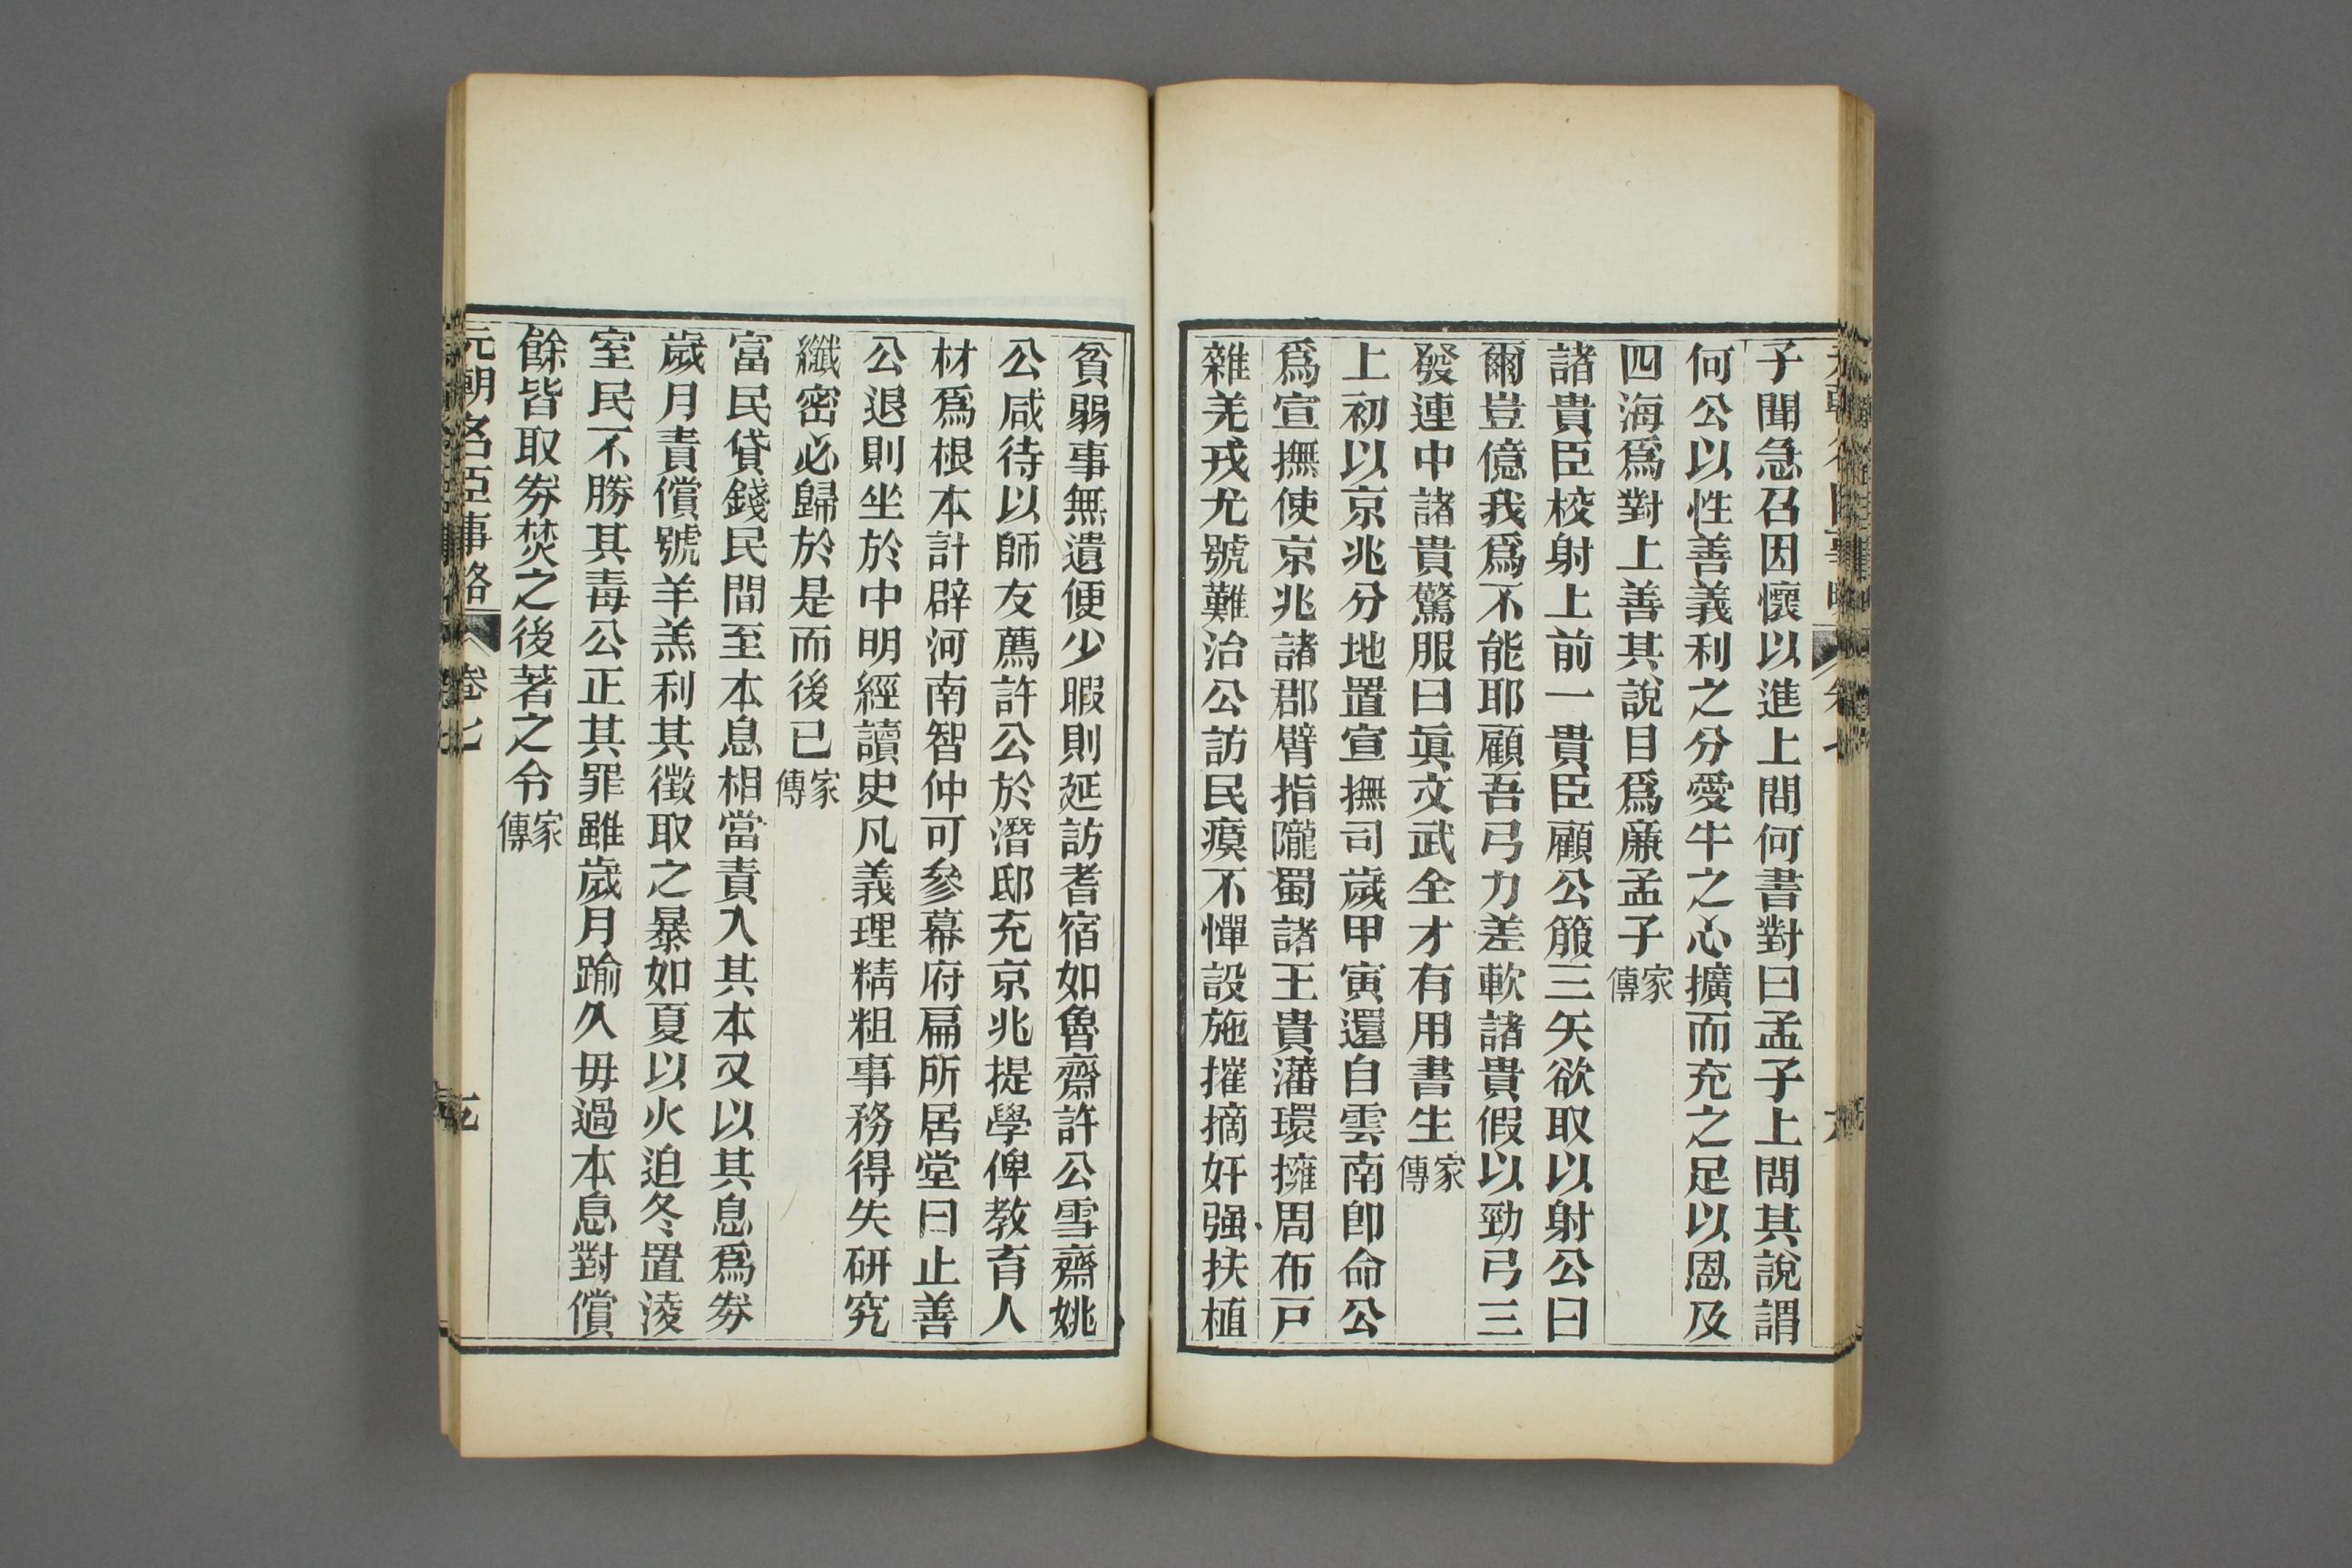 子聞急召因懷以進上問何書對曰孟子上問其說謂
何公以性善義利之分愛牛之心擴而充之足以恩及
四海爲對上善其說目爲廉孟子家傳
諸貴臣校射上前一貴臣顧公箙三矢欲取以射公曰
爾豈億我爲不能耶顧吾弓力差軟諸貴假以勁弓三
發連中諸貴驚服曰眞文武全才有用書生家傳
上初以京兆分地置宣撫司歲甲寅還自雲南卽命公
爲宣撫使京兆諸郡臂指隴蜀諸王貴藩環擁周布戸
雜羌戎尤號難治公訪民瘼不憚設施摧摘奸强扶植
貧弱事無遺便少暇則延訪耆宿如魯齋許公雪齋姚
公咸待以師友薦許公於潛邸充京兆提學俾教育人
材爲根本計辟河南智仲可參幕府扁所居堂曰止善
公退則坐於中明經讀史凡義理精粗事務得失研究
纖密必歸於是而後已家傳
富民貸錢民間至本息相當責入其本又以其息爲券
歲月責償號羊羔利其徵取之暴如夏以火迫冬置淩
室民不勝其毒公正其罪雖歲月踰久毋過本息對償
餘皆取券焚之後著之令家傳
元朝名臣事略 卷七